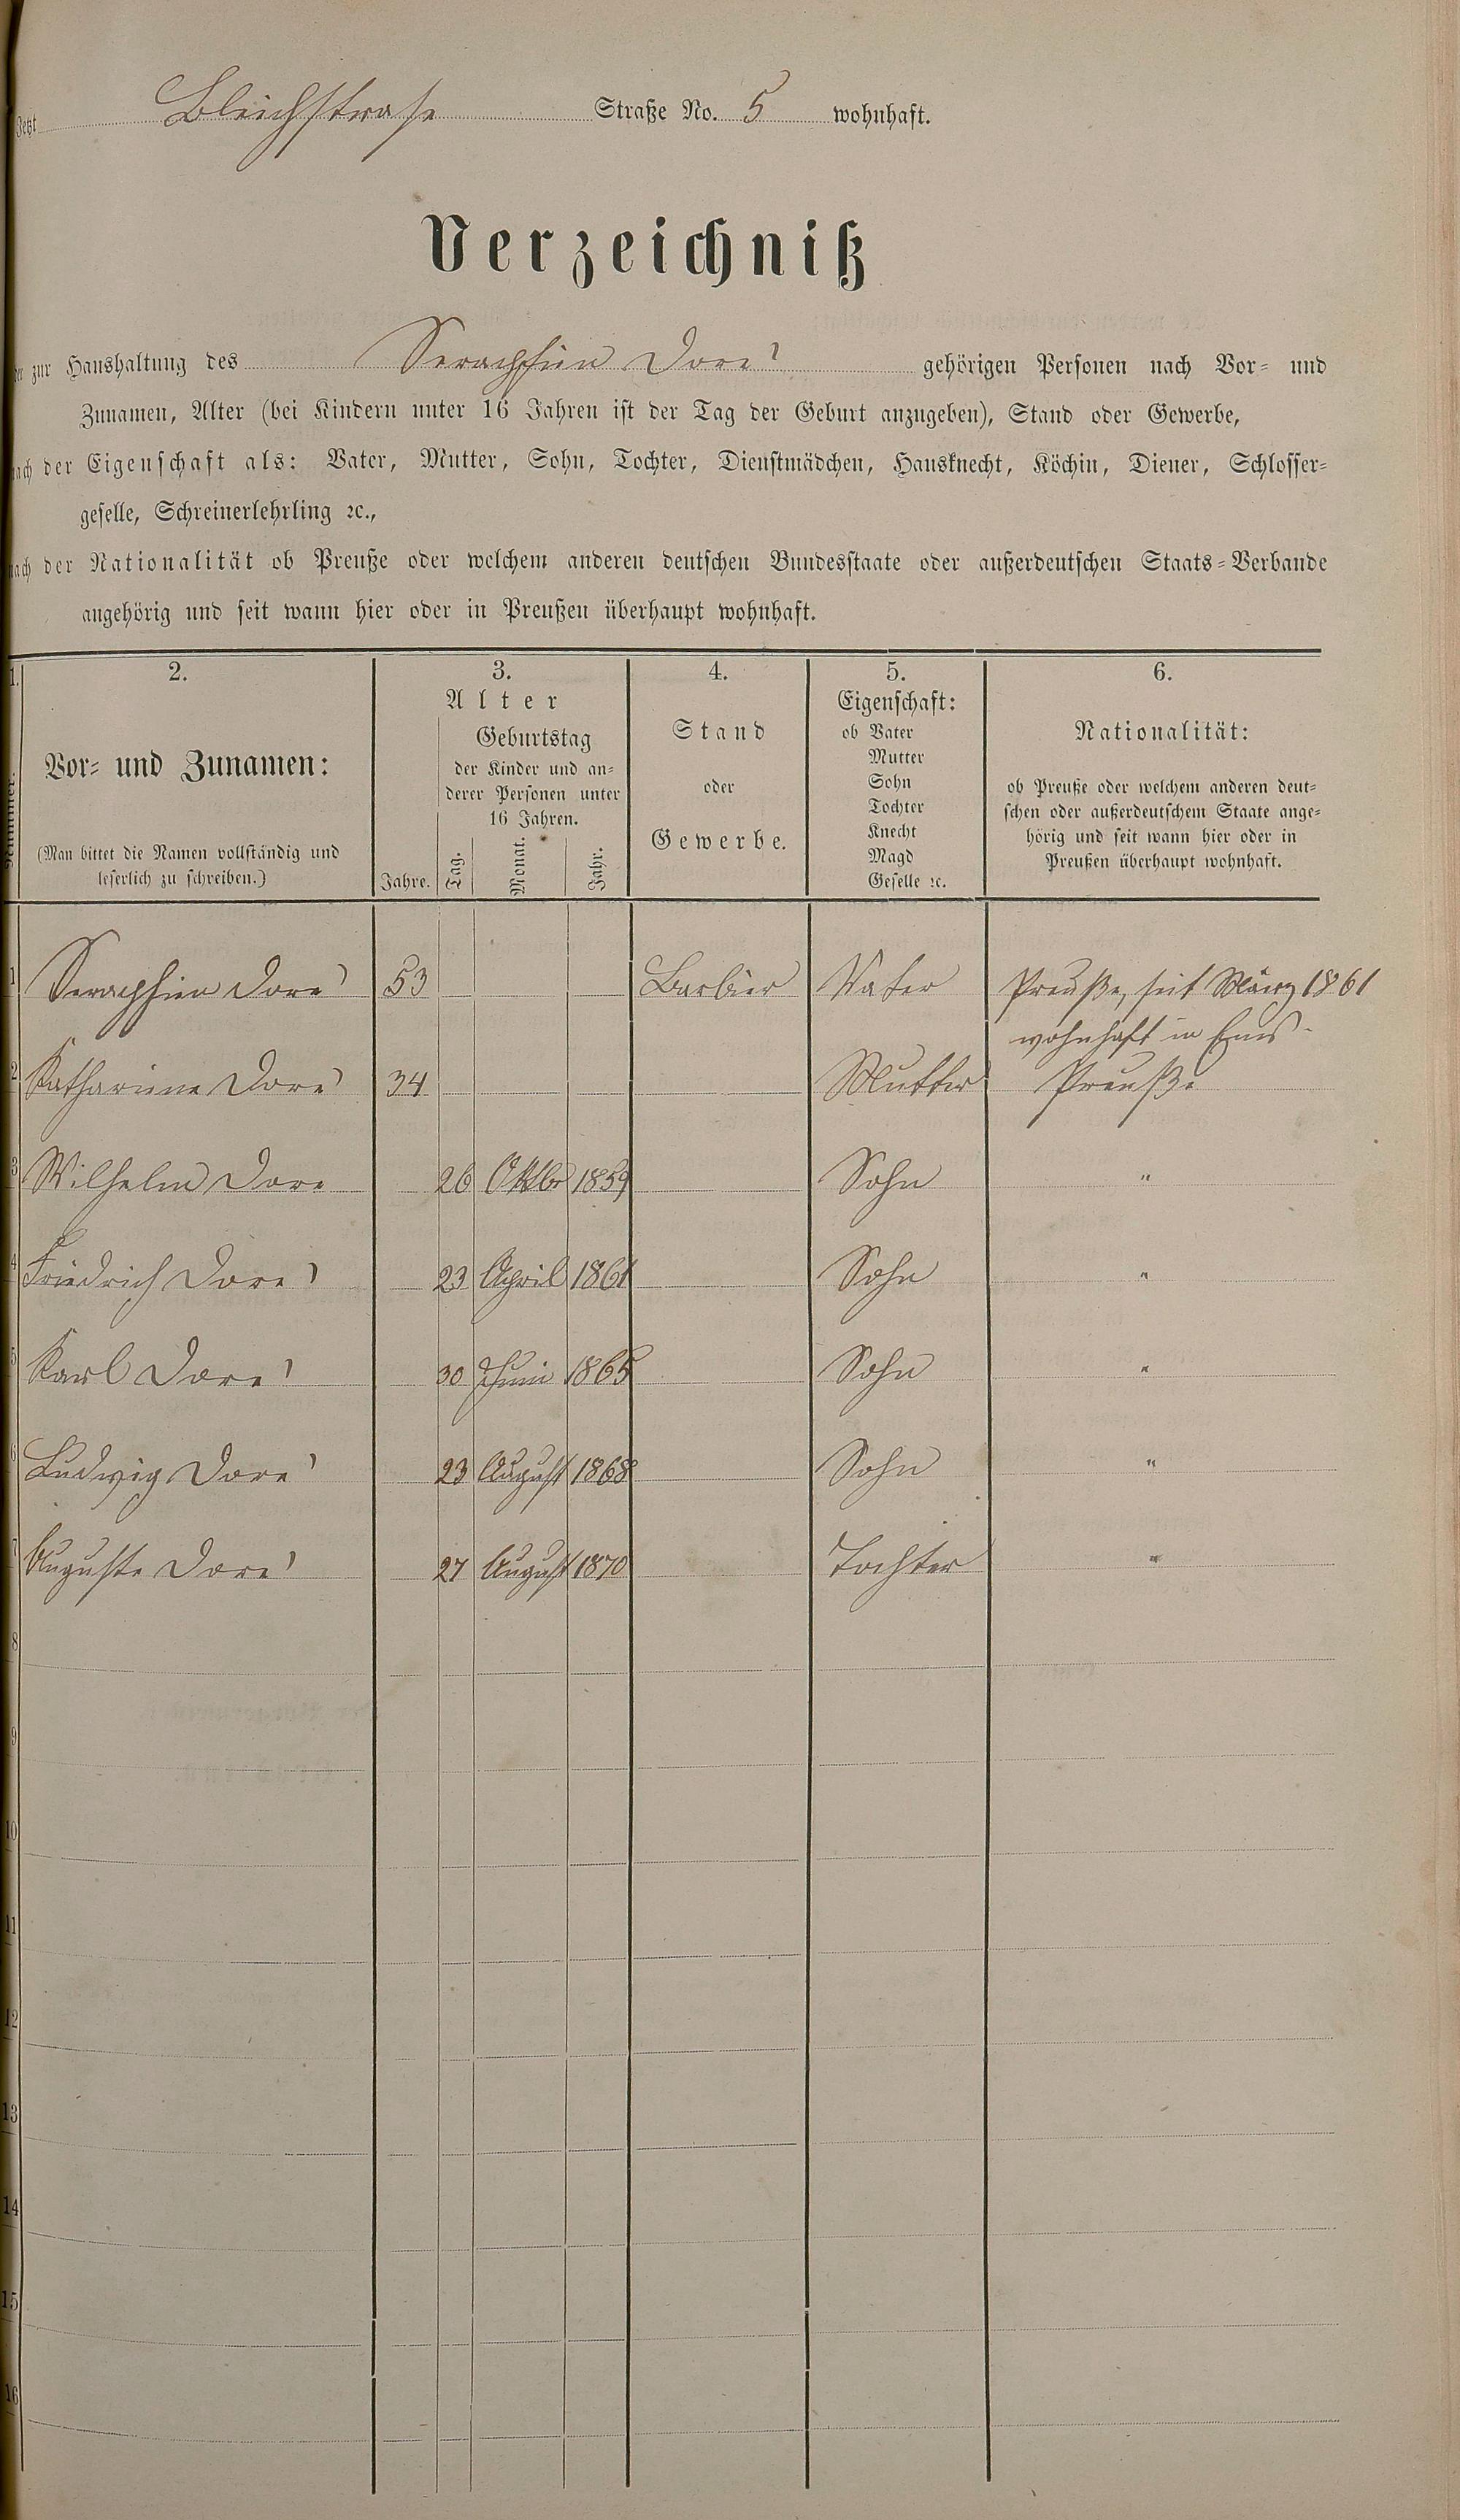 Jetzt Bleichstrase Straße No. 5 wohnhaft.
Verzeichniß
der zur Haushaltung des Seraphien Doré gehörigen Personen nach Vor- und
Zunamen, Alter (bei Kindern unter 16 Jahren ist der Tag der Geburt anzugeben), Stand oder Gewerbe,
nach der Eigenschaft als: Vater, Mutter, Sohn, Tochter, Dienstmädchen, Hausknecht, Köchin, Diener, Schlosser-
geselle, Schreinerlehrling ꝛc.,
nach der Nationalität ob Preuße oder welchem anderen deutschen Bundesstaate oder außerdeutschen Staats-Verbande
angehörig und seit wann hier oder in Preußen überhaupt wohnhaft.
1. 2. 3. 4. 5. 6.
Vor- und Zunamen:
(Man bittet die Namen vollständig und
leserlich zu schreiben.)
Alter
Geburtstag
der Kinder und an-
derer Personen unter
16 Jahren.
Jahre. Tag. Monat. Jahr.
Stand
oder
Gewerbe.
Eigenschaft:
ob Vater
Mutter
Sohn
Tochter
Knecht
Magd
Geselle ꝛc.
Nationalität:
ob Preuße oder welchem anderen deut-
schen oder außerdeutschem Staate ange-
hörig und seit wann hier oder in
Preußen überhaupt wohnhaft.
1 Seraphien Doré 53 Barbier Vater Preuße, seit März 1861
wohnhaft in Ems.
2 Katharine Doré 34 Mutter Preuße
3 Wilhelm Dore 26 Oktbr 1859 Sohn "
4 Friedrich Doré 23 April 1861 Sohn "
5 Karl Doré 30 Juni 1865 Sohn "
6 Ludwig Doré 23 August 1868 Sohn "
7 Auguste Doré 27 August 1870 Tochter "
8
9
10
11
12
13
14
15
16